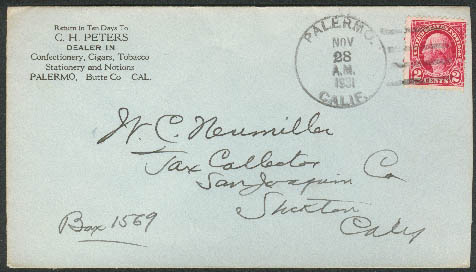 Return in Ten Days To
C. H. PETERS
DEALER IN
Confectionery, Cigars, Tobacco
Stationery and Notions
PALERMO, Butte Co CAL.
PALERMO,
NOV
28
A.M.
1931
CALIF.
UNITED STATES POSTAGE
2 CENTS 2
W. C. Neumiller
Tax Collector
San Joaquin Co
Stockton
Box 1569
Calif